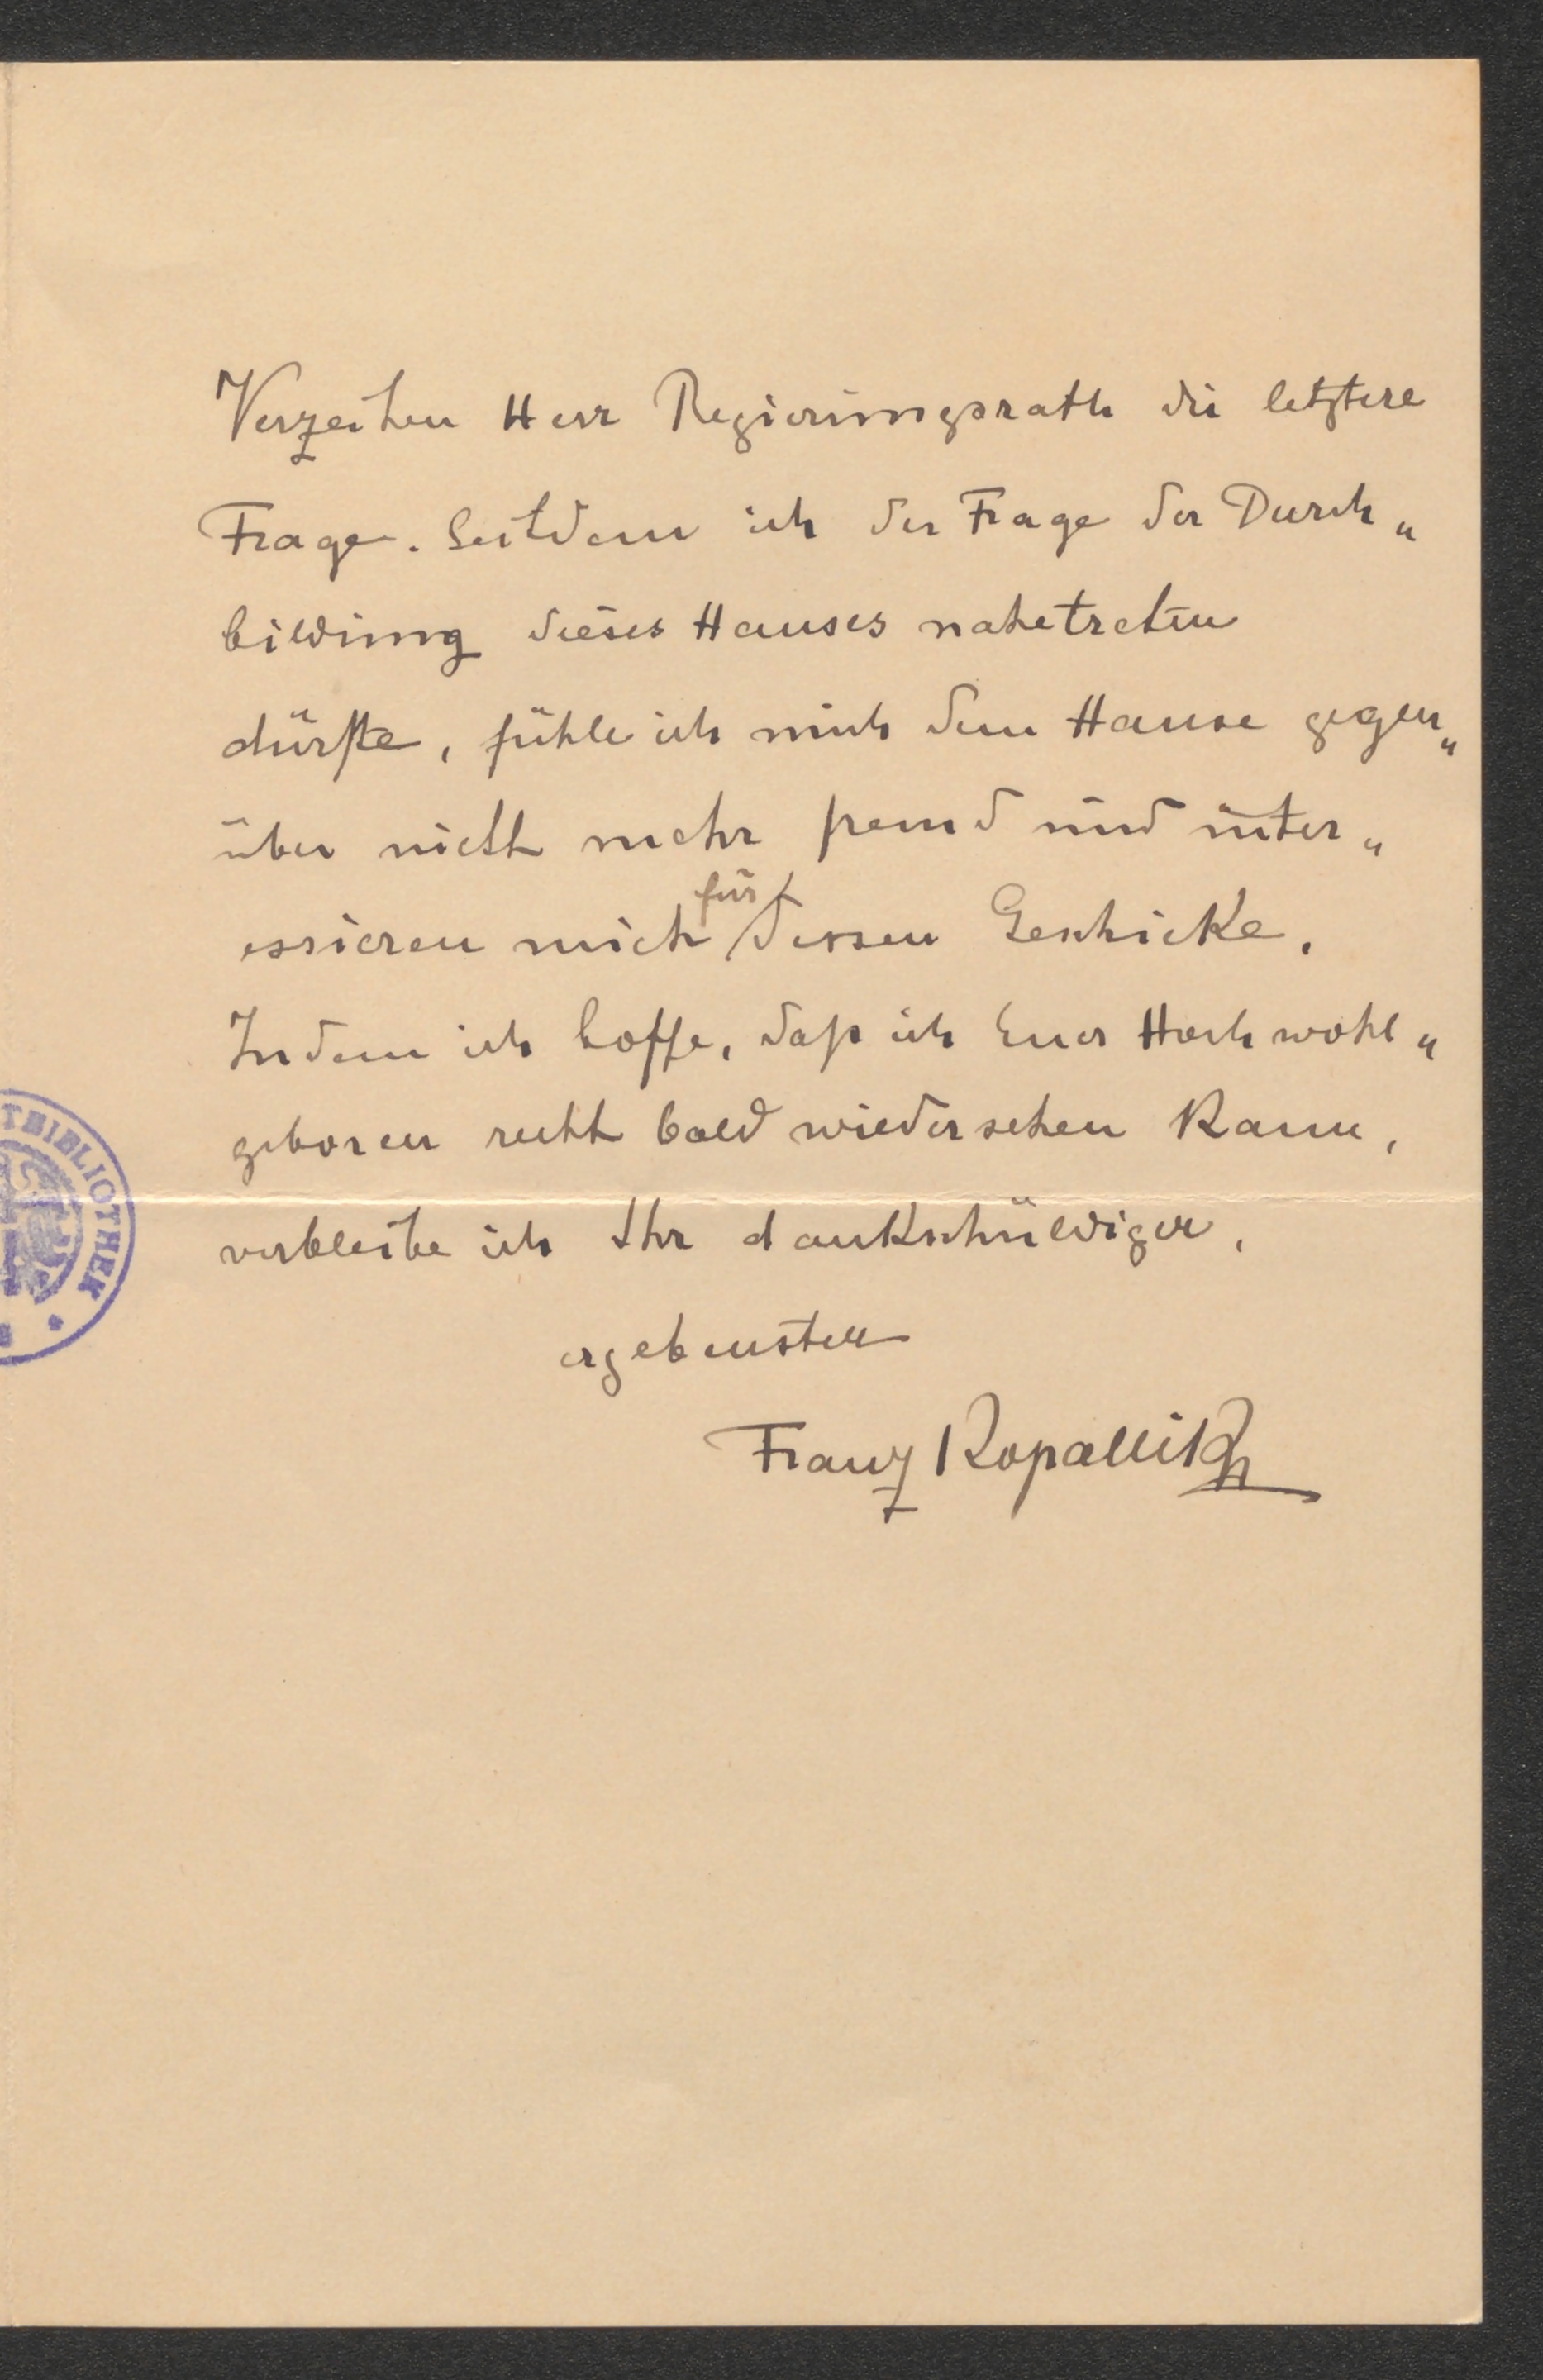 Verzeihen Herr Regierungsrath die letztere
Frage. Seitdem ich der Frage der Durch„
bildung dieses Hauses nahetreten
dürfte, fühle ich mich dem Hause gegen„
über nicht mehr fremd und inter„
für
essieren mich dessen Geschicke.
Indem ich hoffe, daß ich Euer Hochwohl„
geboren recht bald wiedersehen kann,
verbleibe ich Ihr dankschuldiger,
ergebenster
Franz Kopallik
TBIBLIOTHEK